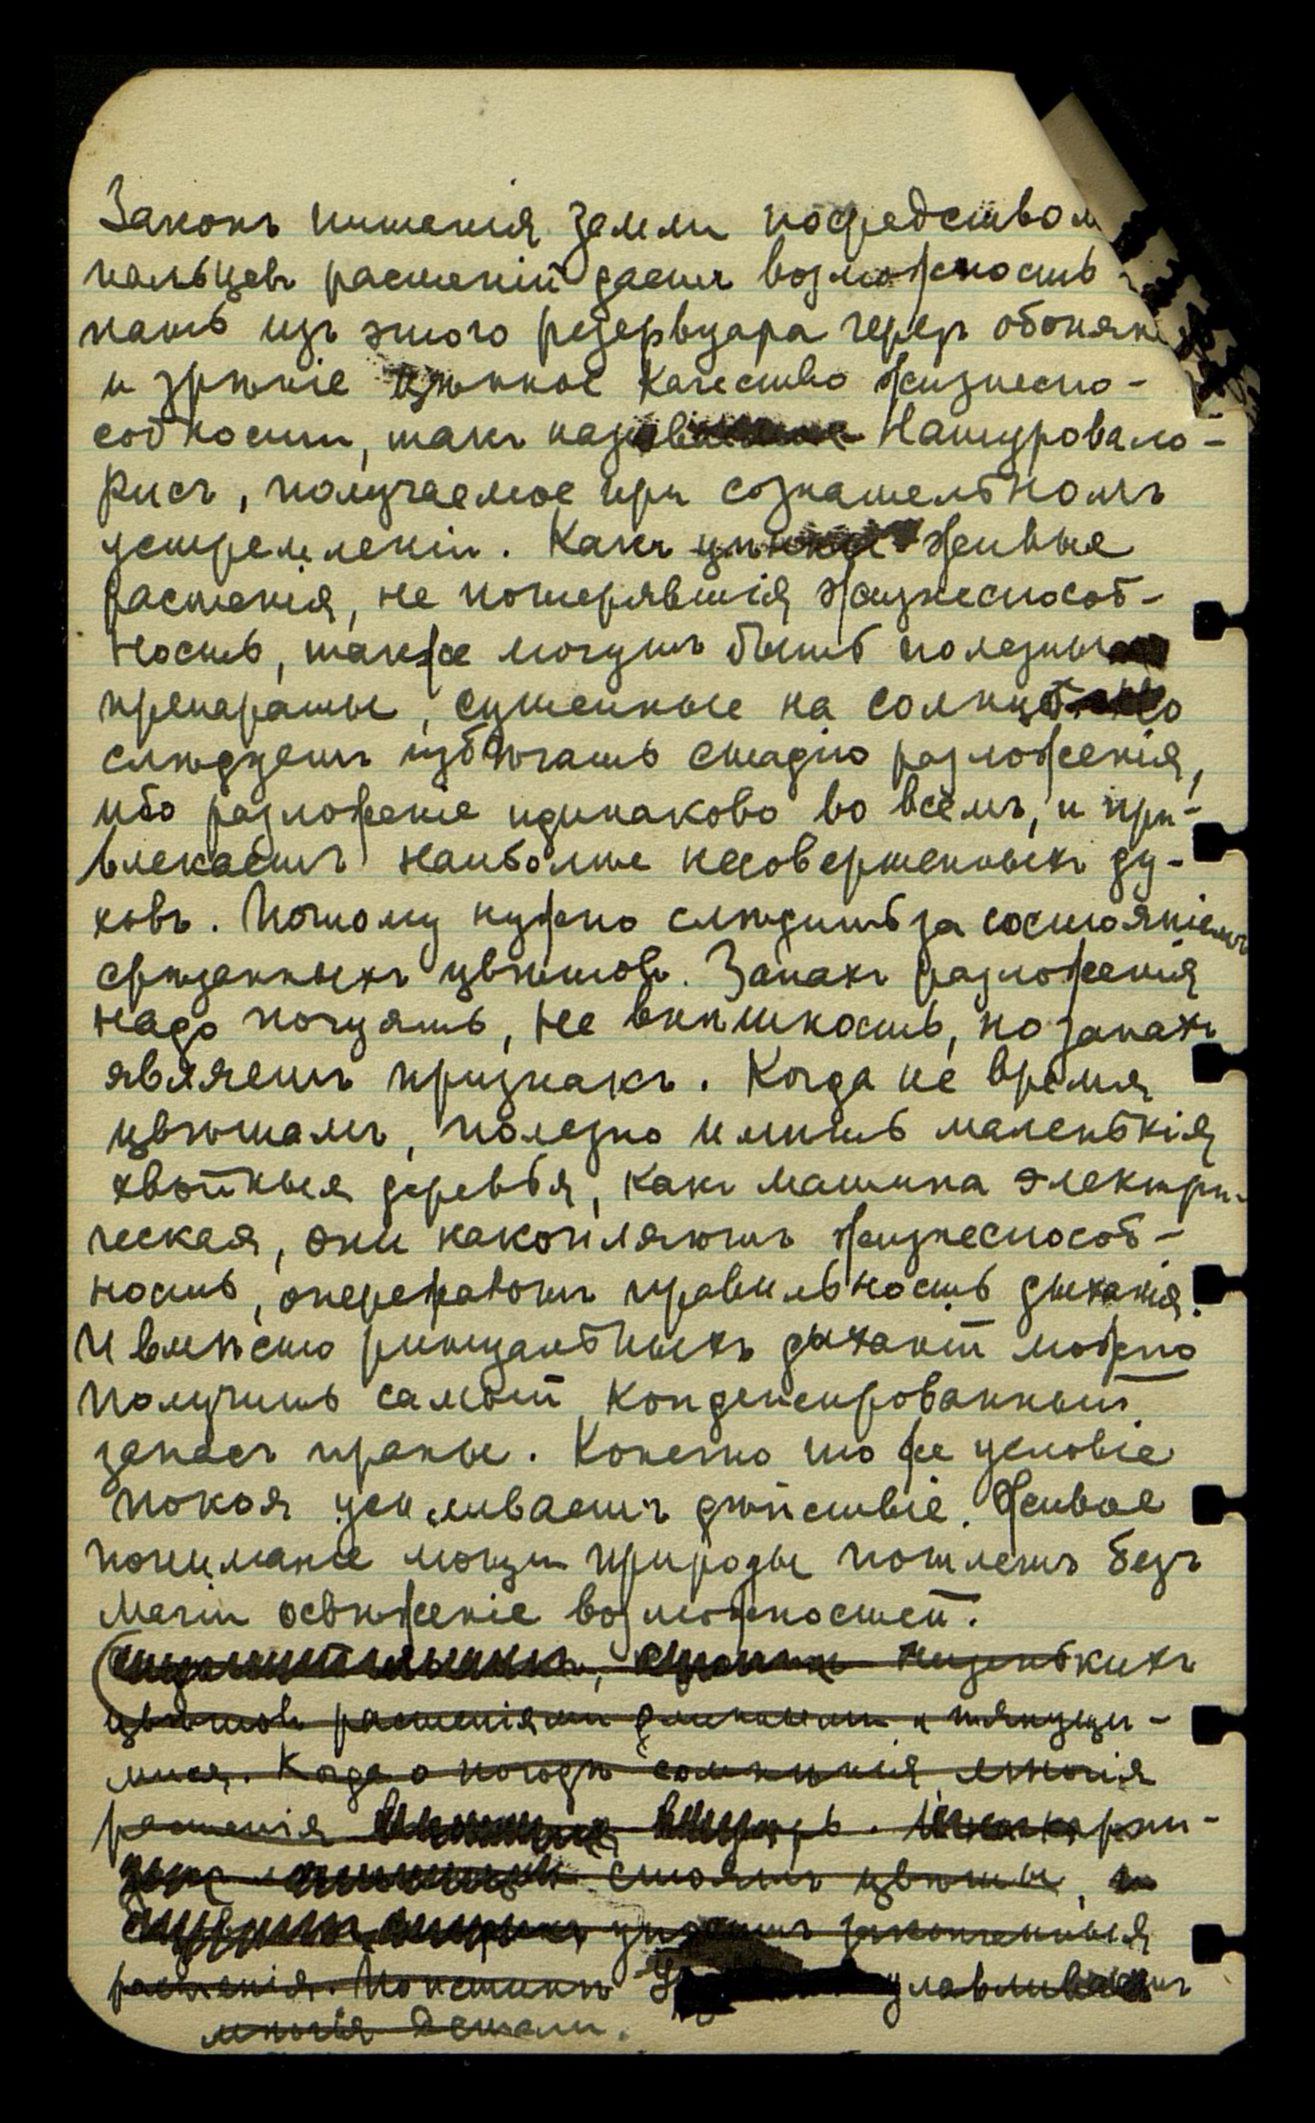 Законъ питанія земли посредством
пальцевъ растеній даетъ возможность
нать изъ этого резервуара черезъ обоняні
и зрѣніе цѣнное качество жизнеспо-
собности, такъ назыв Натуровало-
рисъ, получаемое при сознательномъ
устремленіи. Какъ цѣнны живые
растенія, не потерявшія жизнеспособ-
ность, также могутъ быть полезны
препараты, сушенные на солнцѣ. Но
слѣдуетъ избѣгать стадію разложенія,
ибо разложеніе одинаково во всемъ, и при-
влекаетъ наиболѣе несовершенныхъ ду-
ховъ. Потому нужно слѣдить за состояніемъ
срѣзанныхъ цвѣтовъ. Запахъ разложенія
надо почуять, не внѣшность, но запахъ
являетъ признакъ. Когда не время
цвѣтамъ, полезно имѣть маленькія
хвойныя деревья, какъ машина электри-
ческая, они накопляютъ жизнеспособ-
ность, опережаютъ правильность дыханія.
И вмѣсто ритуальныхъ дыханій можно
получить самый конденсированный
запасъ праны. Конечно то же условіе
покоя усиливаетъ дѣйствіе. Живое
пониманіе мощи природы пошлетъ безъ
магіи освѣженіе возможностей.
низенькихъ
цвѣтовъ растеніями длинными и тянущи-
мися. Когда о погодѣ многія
растенія
стоятъ цвѣты, и
законченныя
растенія. улавливаетъ
многія детали.